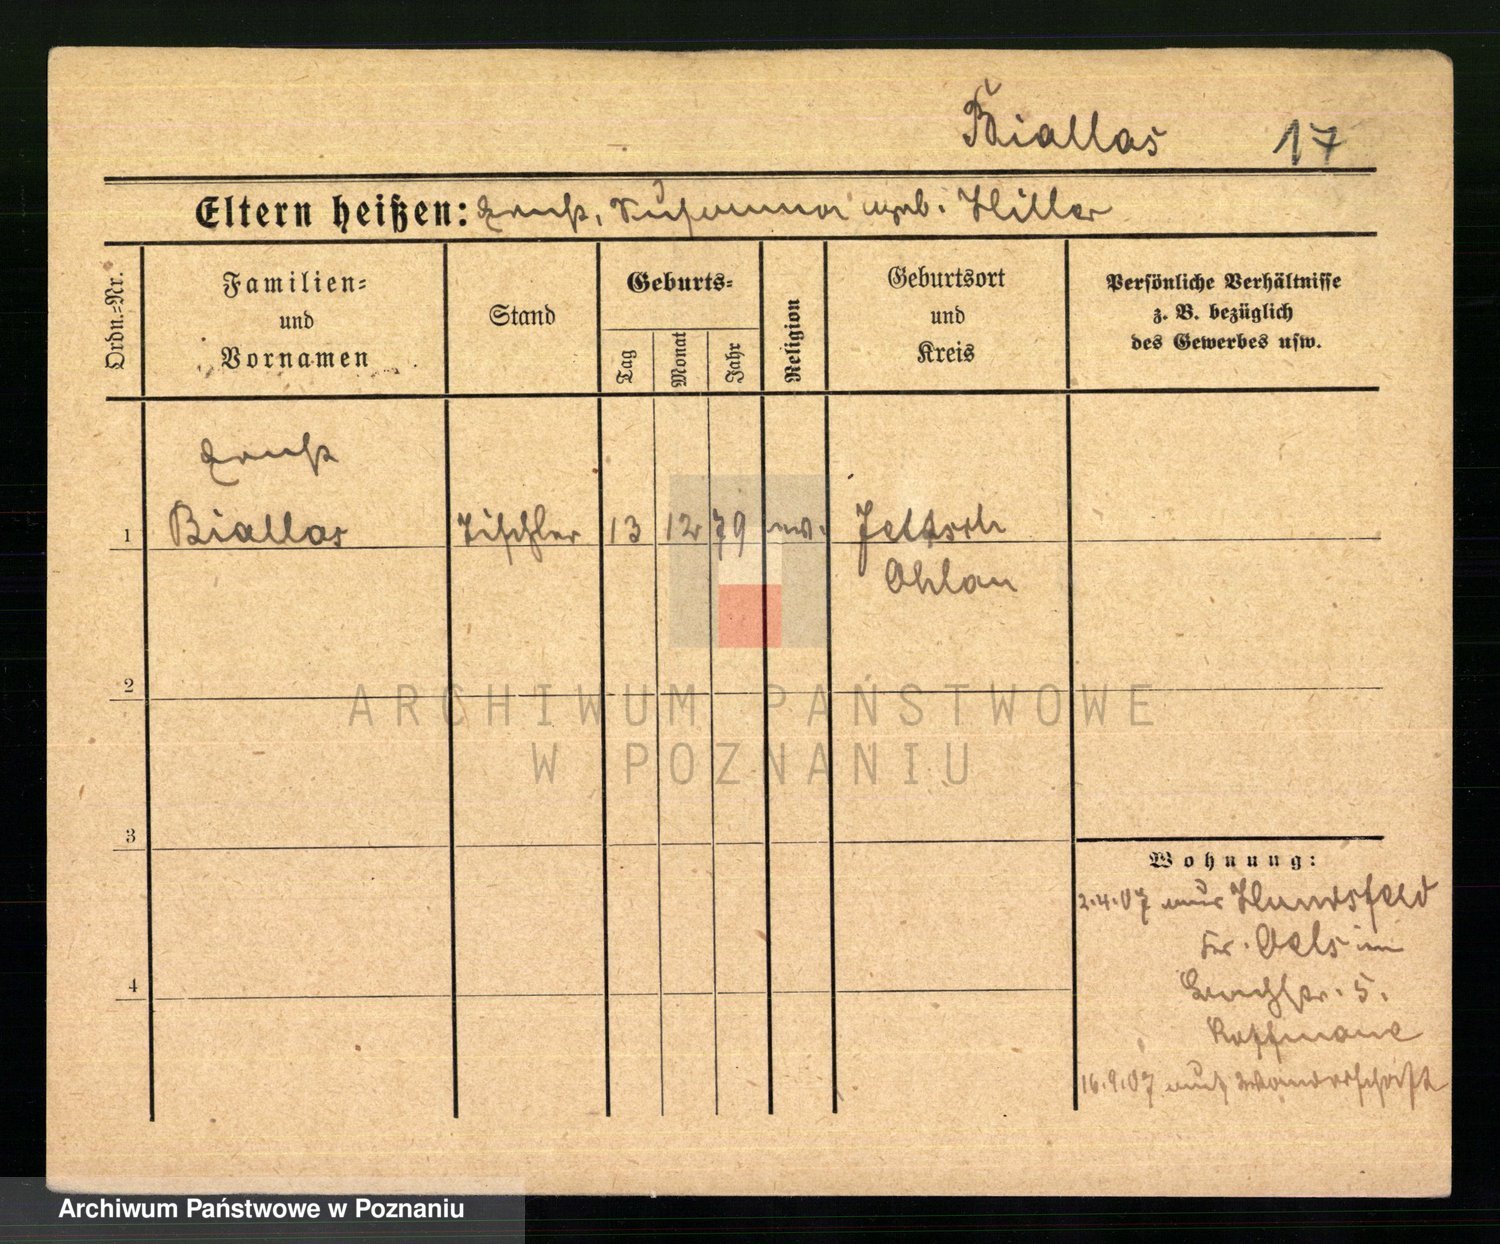 Biallas 17
Eltern heißen: Ernst, Susanna geb. Hiller
Ordn.=Nr.
Familien=
und
Vornamen
Stand
Geburts=
Tag
Monat
Jahr
Religion
Geburtsort
und
Kreis
Persönliche Verhältnisse
z. B. bezüglich
des Gewerbes usw.
Ernst
1 Biallas Tischler 13 12 79 ev. Jeltsch
Ohlau
2
3
4
Wohnung:
2.4.07 aus Hundsfeld
Kr. Oels in
5.
Koffmane
16.9.07 auf Wanderschaft
ARCHIWUM PAŃSTWOWE
W POZNANIU
Archiwum Państwowe w Poznaniu